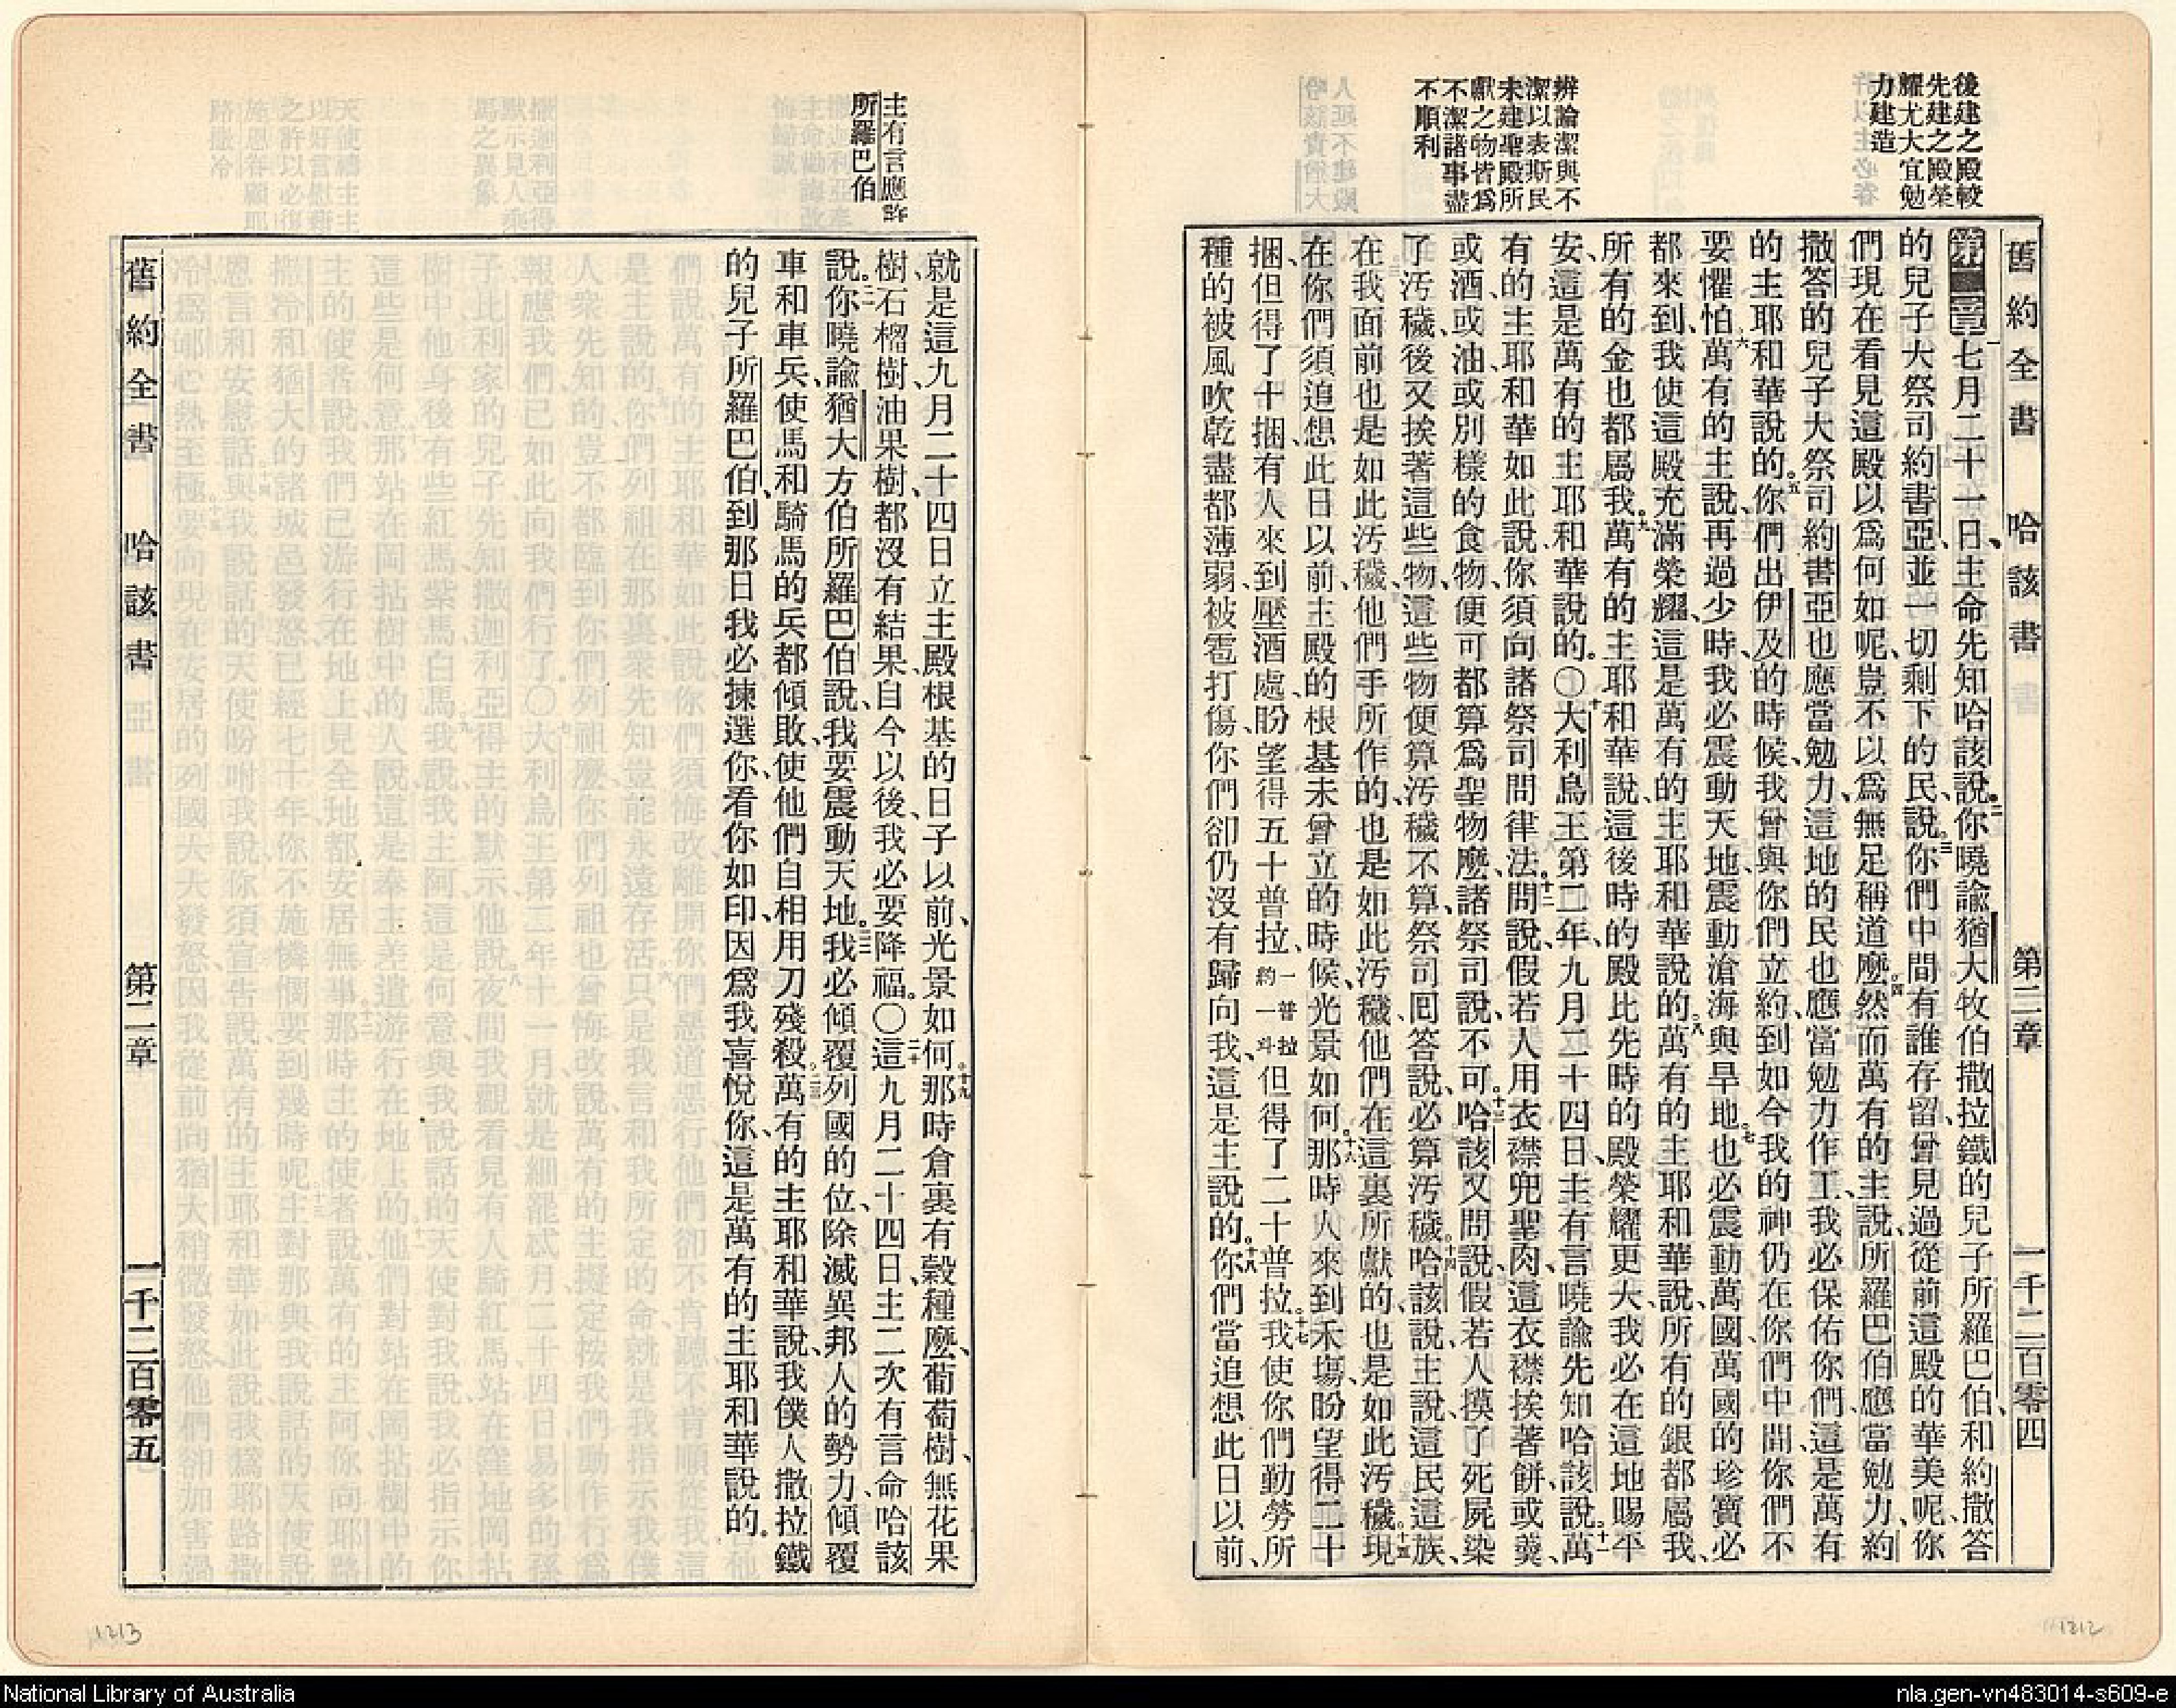 後建之殿較
先建之殿榮
耀尤大宜勉
力建造
辨論潔與不
潔以表斯民
未建聖殿所
獻之物皆爲
不潔諸事盡
不順利
舊約全書 哈該書 第二章 一千二百零四
第二章一七月二十一日、主命先知哈該說、二你曉諭猶大牧伯撒拉鐵的兒子所羅巴伯、和約撒答
的兒子大祭司約書亞、並一切剩下的民、說、三你們中間有誰存留、曾見過從前這殿的華美呢、你
們現在看見這殿以爲何如呢、豈不以爲無足稱道麼。四然而萬有的主說、所羅巴伯應當勉力、約
撒答的兒子大祭司約書亞也應當勉力、這地的民也應當勉力作工、我必保佑你們、這是萬有
的主耶和華說的。五你們出伊及的時候、我曾與你們立約、到如今我的神仍在你們中間、你們不
要懼怕。六萬有的主說、再過少時、我必震動天地、震動滄海與旱地。七也必震動萬國、萬國的珍寶必
都來到、我使這殿充滿榮耀、這是萬有的主耶和華說的。八萬有的主耶和華說、所有的銀都屬我、
所有的金也都屬我。九萬有的主耶和華說、這後時的殿比先時的殿榮耀更大、我必在這地賜平
安、這是萬有的主耶和華說的。〇十大利烏王第二年、九月二十四日、主有言曉諭先知哈該說。十一萬
有的主耶和華如此說、你須向諸祭司問律法。十二問說、假若人用衣襟兜聖肉、這衣襟挨著餅、或羹、
或酒、或油、或別樣的食物、便可都算爲聖物麼、諸祭司說、不可。十三哈該又問說、假若人摸了死屍染
了汚穢、後又挨著這些物、這些物便算汚穢不算、祭司回答說、必算汚穢。十四哈該說、主說、這民這族、
在我面前也是如此汚穢、他們手所作的、也是如此汚穢、他們在這裏所獻的、也是如此汚穢。十五現
在你們須追想此日以前、主殿的根基未曾立的時候、光景如何。十六那時人來到禾場、盼望得二十
捆、但得了十捆、有人來到壓酒處、盼望得五十普拉、一普拉約一斗但得了二十普拉。十七我使你們勤勞所
種的被風吹乾盡都薄弱、被雹打傷、你們卻仍沒有歸向我、這是主說的。十八你們當追想此日以前、
主有言應許
所羅巴伯
就是這九月二十四日立主殿根基的日子以前、光景如何。十九那時倉裏有穀種麼、葡萄樹、無花果
樹、石榴樹、油果樹、都沒有結果、自今以後、我必要降福。〇二十這九月二十四日、主二次有言命哈該
說。二一你曉諭猶大方伯所羅巴伯說、我要震動天地。二二我必傾覆列國的位、除滅異邦人的勢力、傾覆
車和車兵、使馬和騎馬的兵都傾敗、使他們自相用刀殘殺。二三萬有的主耶和華說、我僕人撒拉鐵
的兒子所羅巴伯、到那日我必揀選你、看你如印、因爲我喜悅你、這是萬有的主耶和華說的。
舊約全書 哈該書 第二章 一千二百零五
1213
1212
National Library of Australia
nla.gen-vn483014-s609-e